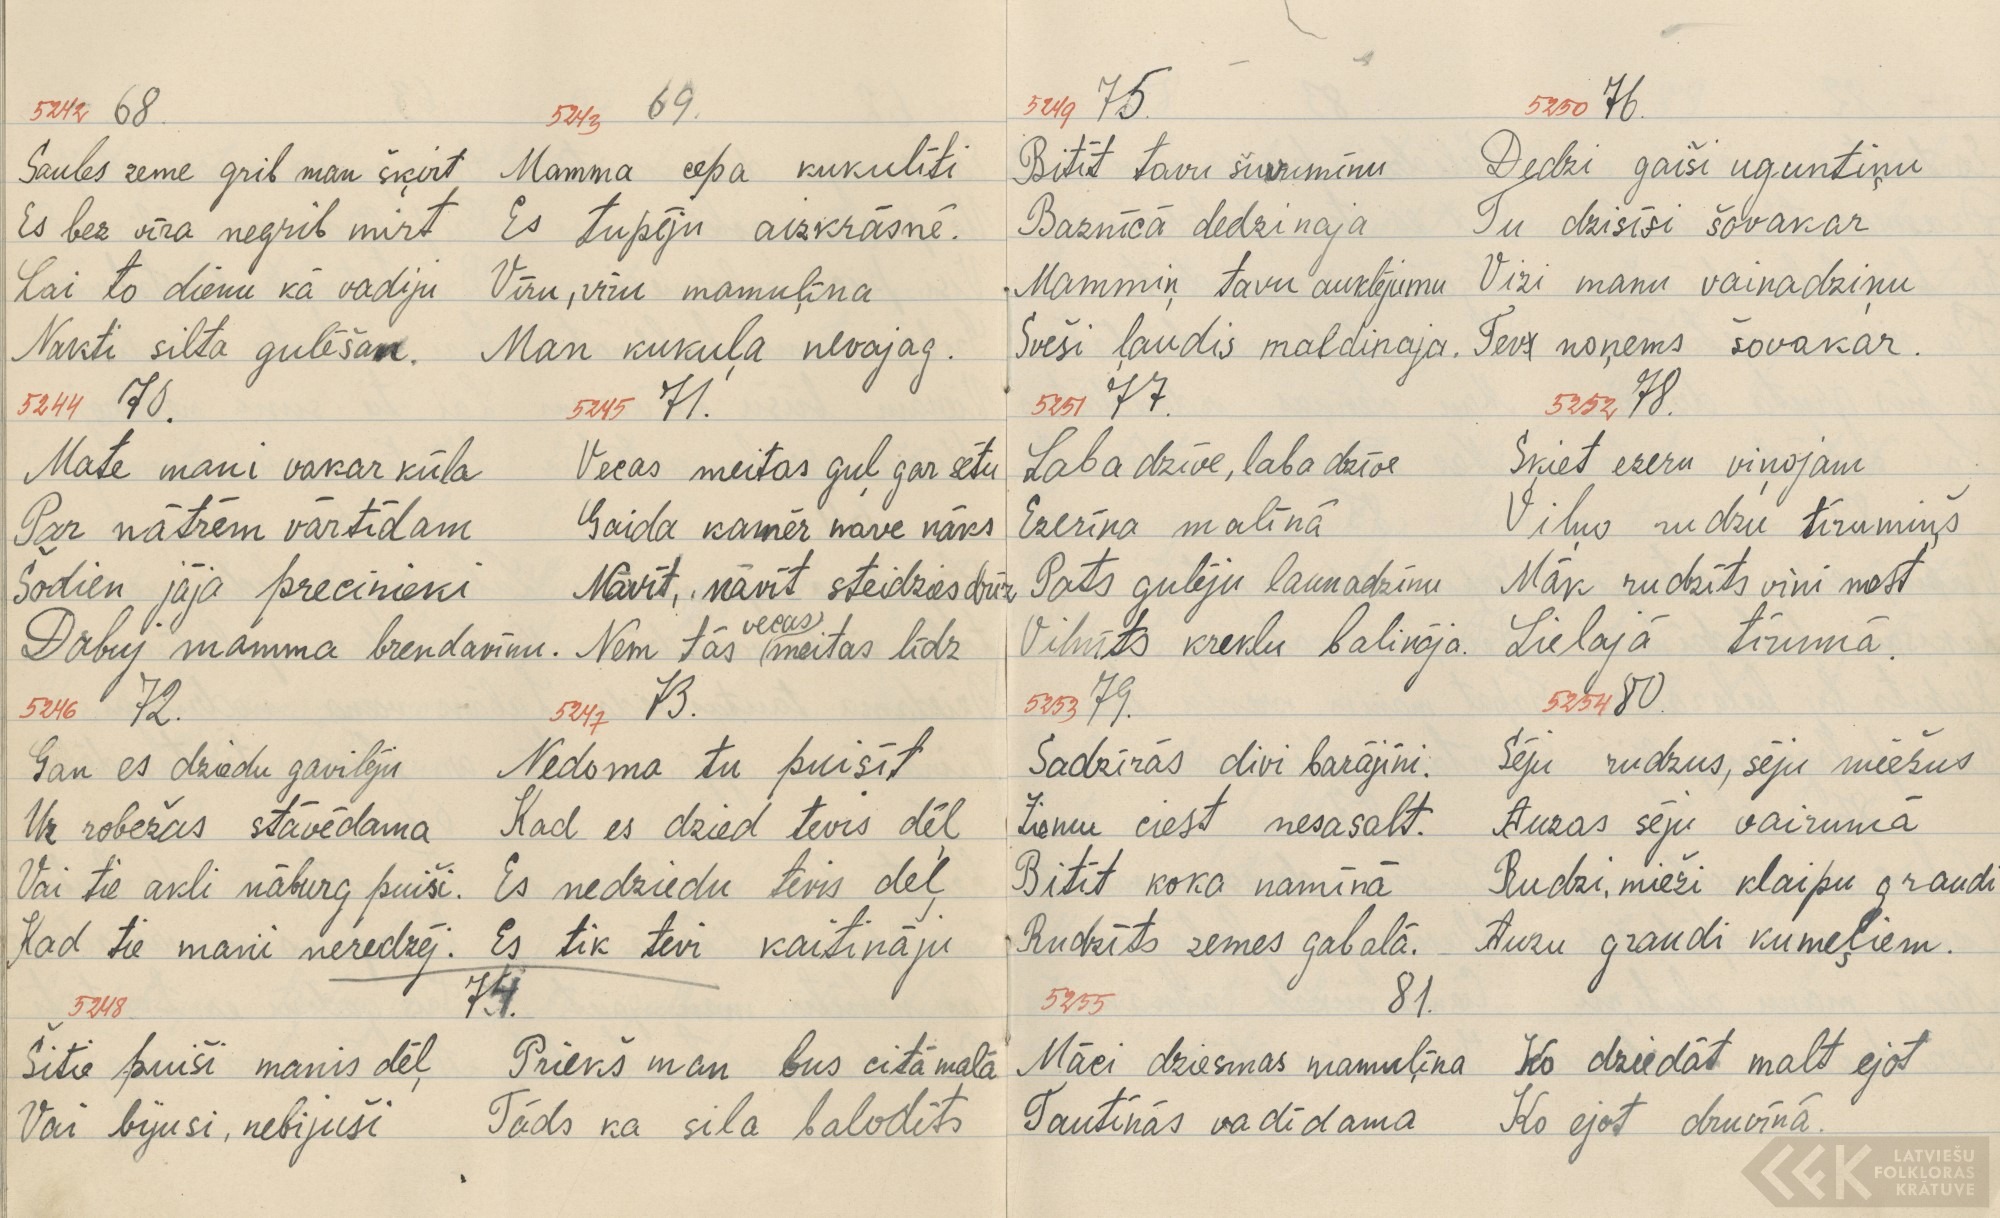 5242 68.
Saules zeme grib man šķirt
Es bez vīra negrib mirt
Lai to dienu kā vadiju
Nakti silta gulēšan.
5243 69.
Mamma cepa kukulīti
Es tupēju aizkrāsnē.
Vīru, vīru mamuļīna
Man kukuļa nevajag.
5244 70.
Mate mani vakar kūla
Par nātrēm vārtīdam
Šodien jāja precinieki
Dabuj mamma brendavīnu.
5245 71.
Vecas meitas guļ gar sētu
Gaida kamēr nave nāks
Nāvīt, nāvīt steidzies drīz
Nem tās vecas meitas līdz
5246 72.
Gan es dziedu gavilēju
Uz robežas stāvēdama
Vai tie akli nāburg puiši.
Kad tie mani neredzēj.
5247 73.
Nedoma tu puisīt
Kad es dzied tevis dēļ
Es nedziedu tevis dēļ
Es tik tevi kaitināju
5248 74.
Šitie puiši manis dēļ
Vai bijusi, nebijuši
Priekš man bus citā malā
Tāds ka sila balodīts
5249 75.
Bitīt tavu šūrumīnu
Baznīcā dedzinaja
Mammiņ tavu auklējumu
Sveši ļaudis maldinaja.
5250 76.
Dedzi gaiši uguntiņu
Tu dzisīsi šovakar
Vizi manu vainadziņu
Tevx noņems šovakar.
5251 77.
Laba dzīve, laba dzīve
Ezerīna malīnā
Pats gulēju launadzīnu
Vilnīts kreklu balināja.
5252 78.
Šķiet ezeru viņojam
Viļņo rudzu tīrumiņš
Māk rudzīts vini mest
Lielajā tīrumā.
5253 79.
Sadzīrās divi barājīni.
Ziemu ciest nesasalt.
Bitīt koka namīnā
Rudzīts zemes gabalā.
5254 80.
Sēju rudzus, sēju miežus
Auzas sēju vairumā
Rudzi, mieži klaipu graudi
Auzu graudi kumeļiem.
5255 81.
Māci dziesmas mamuļīna
Tautīnās vadīdama
Ko dziedāt malt ejot
Ko ejot druvīnā.
LATVIEŠU
FOLKLORAS
KRĀTUVE